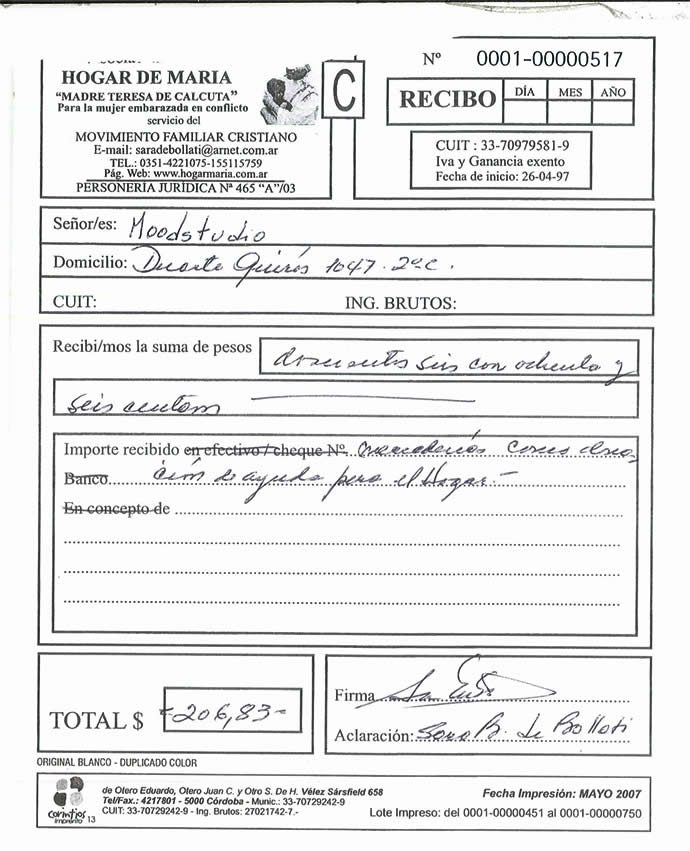 HOGAR DE MARIA
"MADRE TERESA DE CALCUTA"
Para la mujer embarazada en conflicto
servicio del
MOVIMIENTO FAMILIAR CRISTIANO
E-mail: saradebollati@arnet.com.ar
TEL.: 0351-4221075-155115759
Pág. Web: www.hogarmaria.com.ar
PERSONERÍA JURÍDICA Nª 465 "A"/03
C
Nº 0001-00000517
RECIBO DÍA MES AÑO
CUIT : 33-70979581-9
Iva y Ganancia exento
Fecha de inicio: 26-04-97
Señor/es: Moodstudio
Domicilio: Duarte Quirós 1047. 2º C.
CUIT: ING. BRUTOS:
Recibi/mos la suma de pesos doscientos seis con ochenta y
seis centavos
Importe recibido en efectivo / cheque Nº. mercaderías como dona-
Banco ción de ayuda para el Hogar.-
En concepto de
TOTAL $ 206,83-
Firma
Aclaración: Sara B. de Bollati
ORIGINAL BLANCO - DUPLICADO COLOR
corintios
imprenta 13
de Otero Eduardo, Otero Juan C. y Otro S. De H. Vélez Sársfield 658
Tel/Fax.: 4217801 - 5000 Córdoba - Munic.: 33-70729242-9
CUIT: 33-70729242-9 - Ing. Brutos: 27021742-7.-
Fecha Impresión: MAYO 2007
Lote Impreso: del 0001-00000451 al 0001-00000750